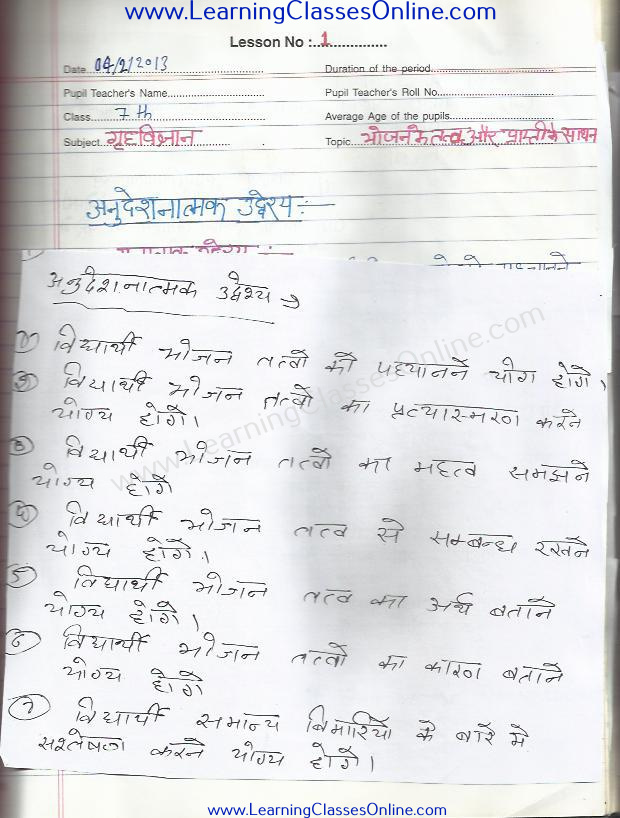 www.LearningClassesOnline.com
Lesson No :..1...............
Date 04/2/2013 Duration of the period
Pupil Teacher's Name Pupil Teacher's Roll No.
Class 7 th Average Age of the pupils
Subject गृहविज्ञान Topic भोजन के तत्व और प्राप्ती के साधन
अनुदेशनात्मक उद्देश्य :-
अनुदेशनात्मक उद्देश्य
1) विद्यार्थी भोजन तत्वों को पहचानने योग होगें।
2) विद्यार्थी भोजन तत्वों का प्रत्यास्मरण करने
योग्य होगें।
3) विद्यार्थी भोजन तत्वों का महत्व समझने
योग्य होगें
4) विद्यार्थी भोजन तत्व से सम्बन्ध रखने
योग्य होगें।
5) विद्यार्थी भोजन तत्व का अर्थ बताने
योग्य होगें।
6) विद्यार्थी भोजन तत्वों का कारण बताने
योग्य होगें
7) विद्यार्थी समान्य बिमारियों के बारे में
सश्लेषण करने योग्य होगें।
www.LearningClassesOnline.com
www.LearningClassesOnline.com